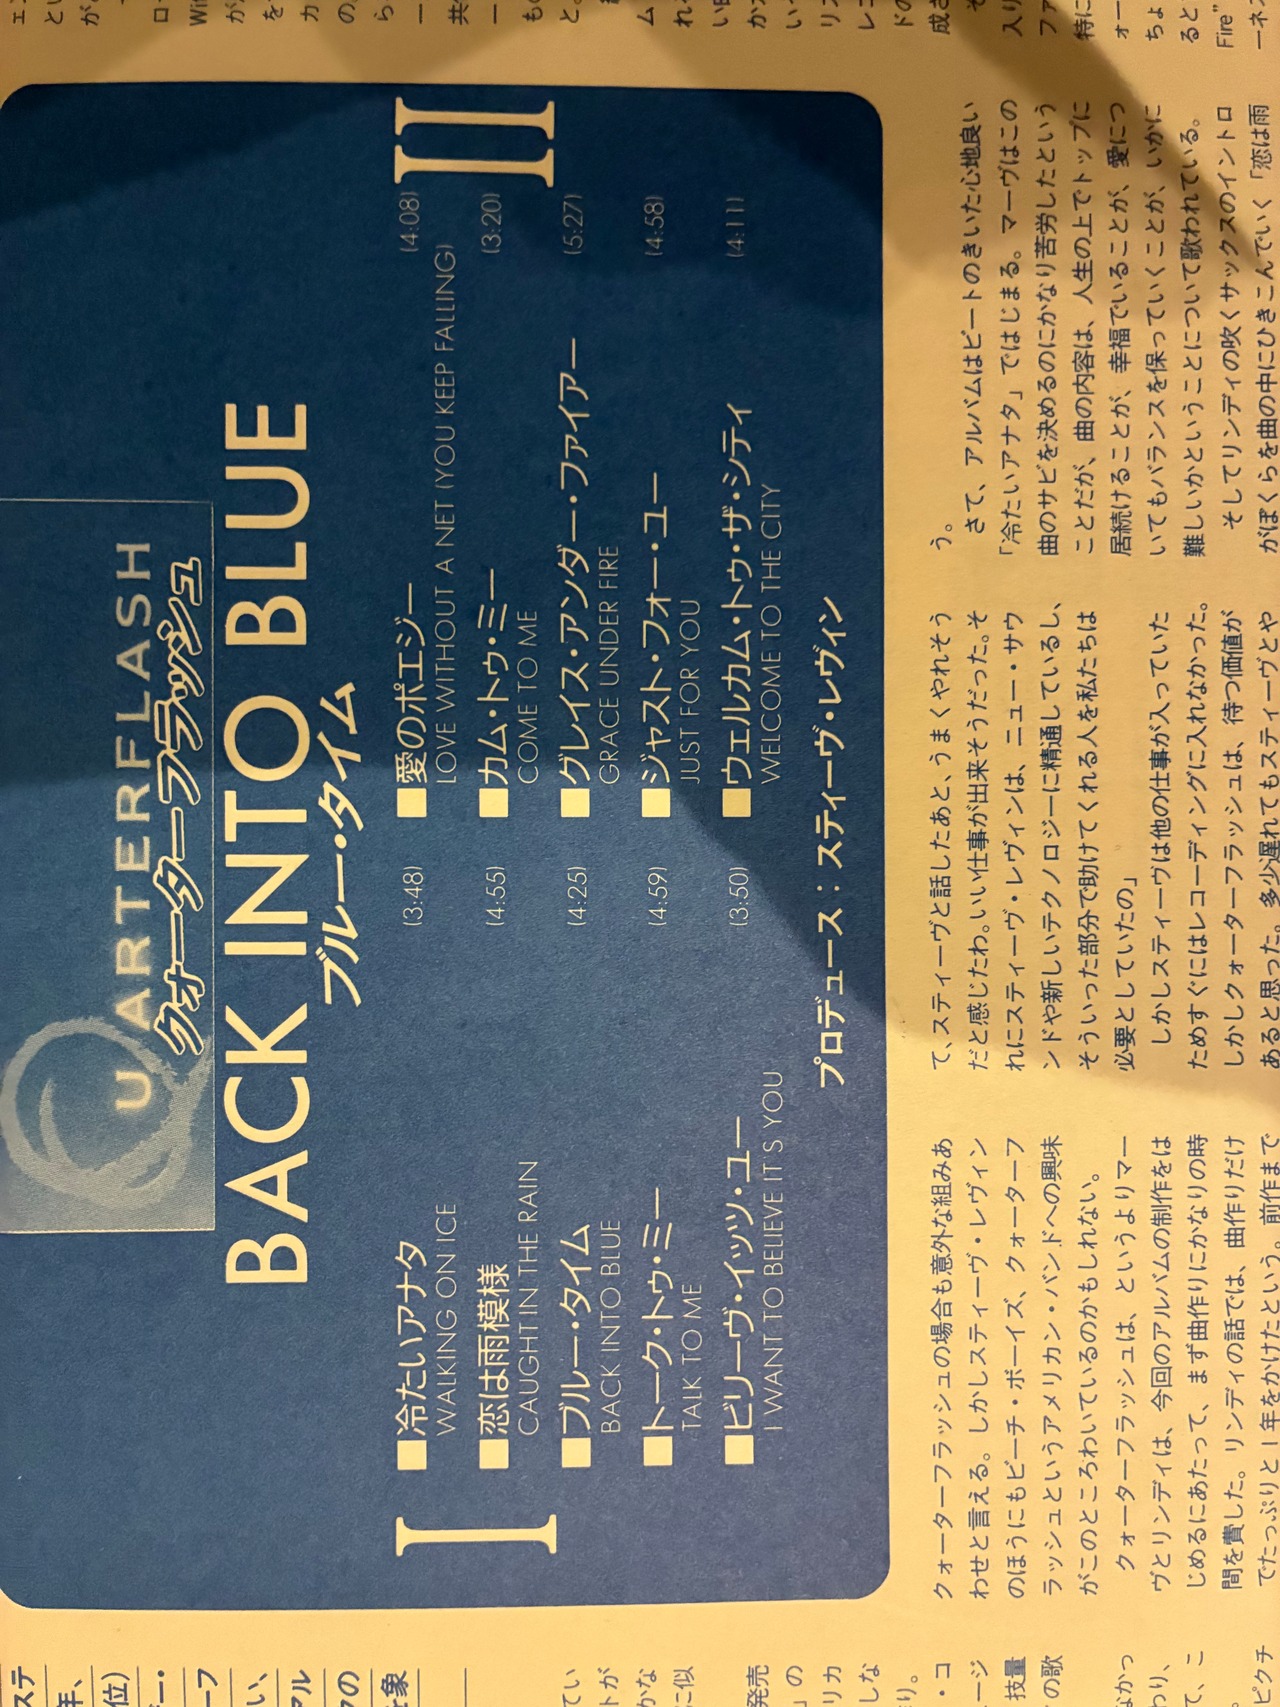 QUARTERFLASH
クォーターフラッシュ
BACK INTO BLUE
ブルー・タイム
I
■冷たいアナタ (3:48)
WALKING ON ICE
■恋は雨模様 (4:55)
CAUGHT IN THE RAIN
■ブルー・タイム (4:25)
BACK INTO BLUE
■トーク・トゥ・ミー (4:59)
TALK TO ME
■ビリーヴ・イッツ・ユー (3:50)
I WANT TO BELIEVE IT'S YOU
II
■愛のポエジー (4:08)
LOVE WITHOUT A NET (YOU KEEP FALLING)
■カム・トゥ・ミー (3:20)
COME TO ME
■グレイス・アンダー・ファイアー (5:27)
GRACE UNDER FIRE
■ジャスト・フォー・ユー (4:58)
JUST FOR YOU
■ウェルカム・トゥ・ザ・シティ (4:11)
WELCOME TO THE CITY
プロデュース：スティーヴ・レヴィン
クォーターフラッシュの場合も意外な組みあ
わせと言える。しかしスティーヴ・レヴィン
のほうにもビーチ・ボーイズ、クォーターフ
ラッシュというアメリカン・バンドへの興味
がこのところわいているのかもしれない。
クォーターフラッシュは、というよりマー
ヴとリンディは、今回のアルバムの制作をは
じめるにあたって、まず曲作りにかなりの時
間を費した。リンディの話では、曲作りだけ
でたっぷりと1年をかけたという。前作まで
て、スティーヴと話したあと、うまくやれそう
だと感じたわ。いい仕事が出来そうだった。そ
れにスティーヴ・レヴィンは、ニュー・サウ
ンドや新しいテクノロジーに精通しているし、
そういった部分で助けてくれる人を私たちは
必要としていたの」
しかしスティーヴは他の仕事が入っていた
ためすぐにはレコーディングに入れなかった。
しかしクォーターフラッシュは、待つ価値が
あると思った。多少遅れてもスティーヴとや
う。
さて、アルバムはビートのきいた心地良い
「冷たいアナタ」ではじまる。マーヴはこの
曲のサビを決めるのにかなり苦労したという
ことだが、曲の内容は、人生の上でトップに
居続けることが、幸福でいることが、愛につ
いてもバランスを保っていくことが、いかに
難しいかということについて歌われている。
そしてリンディの吹くサックスのイントロ
がぼくらを曲の中にひきこんでいく「恋は雨